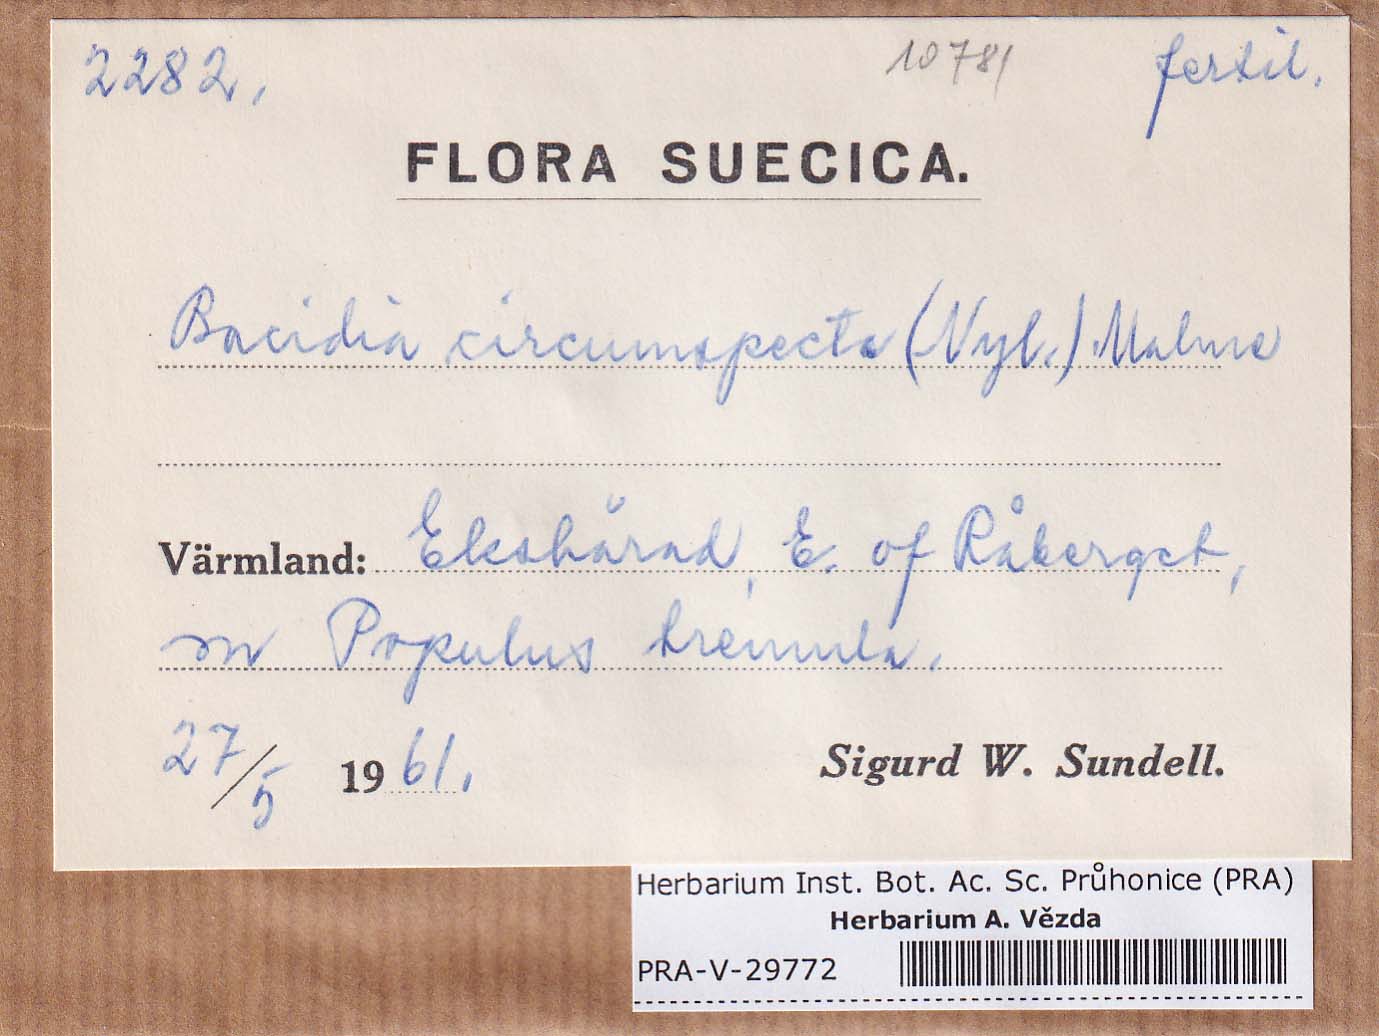 2282, 10781 fertil.
FLORA SUECICA.
Bacidia circumspecta (Nyl.) Malme
Värmland: Ekshärad, E. of Råberget,
on Populus tremula.
27/5 1961. Sigurd W. Sundell.
Herbarium Inst. Bot. Ac. Sc. Průhonice (PRA)
Herbarium A. Vězda
PRA-V-29772